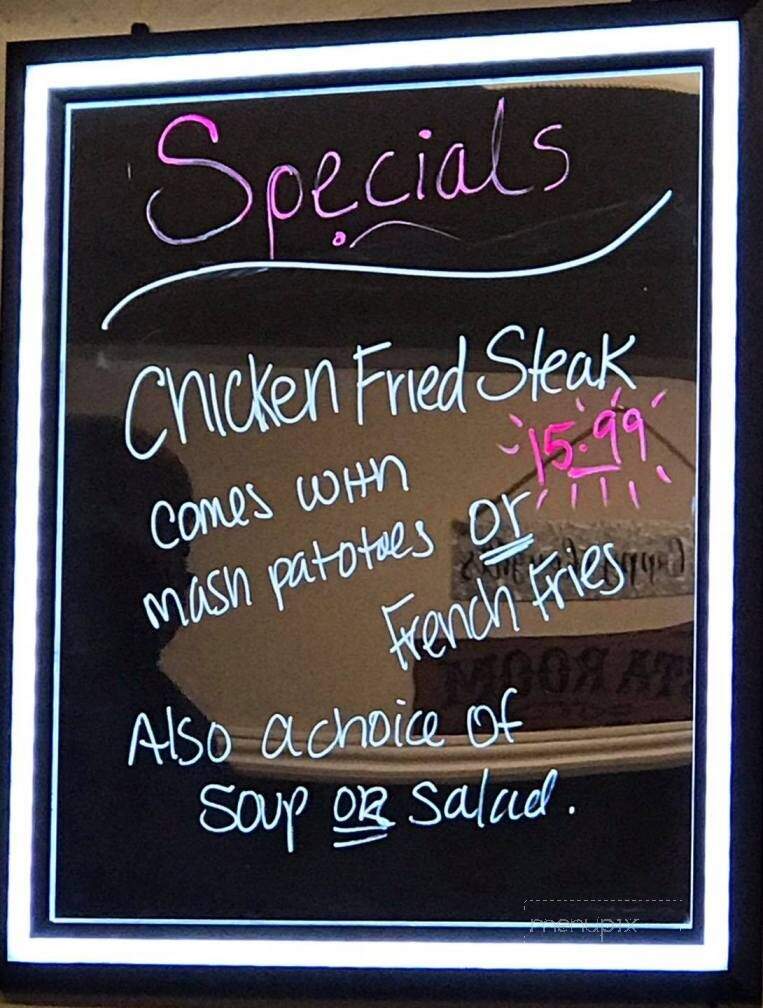 Specials
Chicken Fried Steak
15.99
comes with
mash patotoes or
French Fries
Also a choice of
Soup OR Salad.
menupix